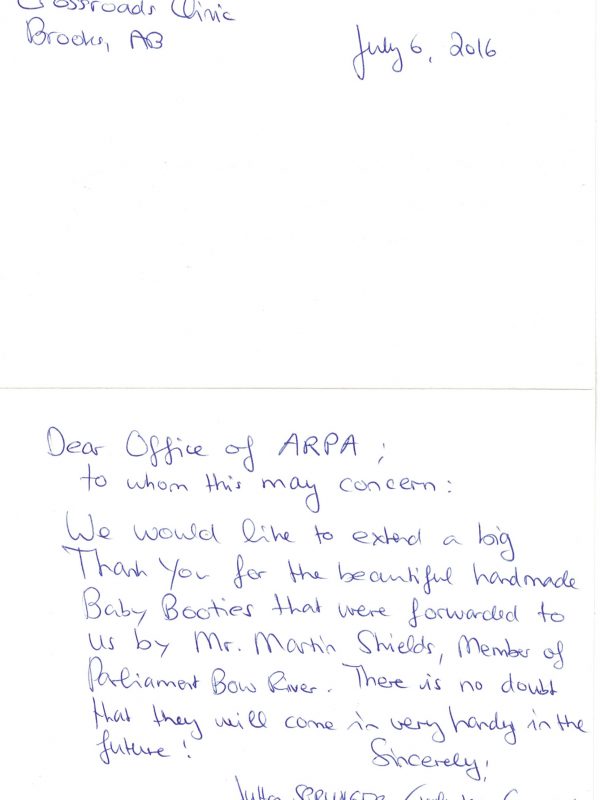 Crossroads Clinic
Brooks, AB
July 6, 2016
Dear Office of ARPA;
to whom this may concern:
We would like to extend a big
Thank You for the beautiful handmade
Baby Booties that were forwarded to
us by Mr. Martin Shields, Member of
Parliament Bow River. There is no doubt
that they will come in very handy in the
future! Sincerely;